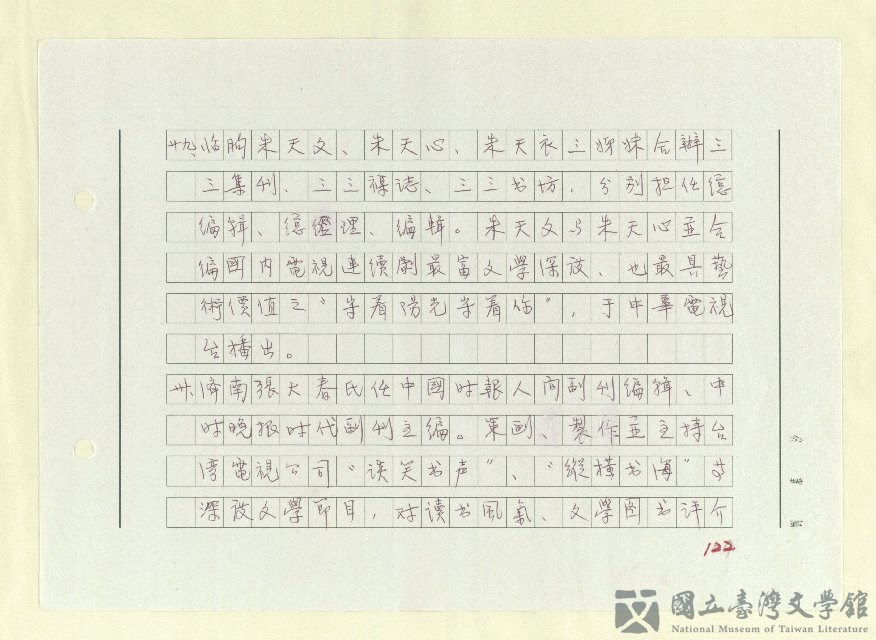 廾九、临朐朱天文、朱天心、朱天衣三姊妹合辦三
三集刊、三三襍誌、三三书坊，分别担任總
编辑、總經理、编輯。朱天文与朱天心並合
编國内電視連續劇最富文學深度、也最具藝
術價值之“守着陽光守着你”，于中華電視
台播出。
卅、濟南張大春氏任中國时報人间副刊编辑、中
时晚报时代副刊主编。策画、製作並主持台
湾電視公司“谈笑书声”、“縱橫书海”廿
深度文學節目，对读书风氣、文學图书评介
122
國立臺灣文學館
National Museum of Taiwan Literature